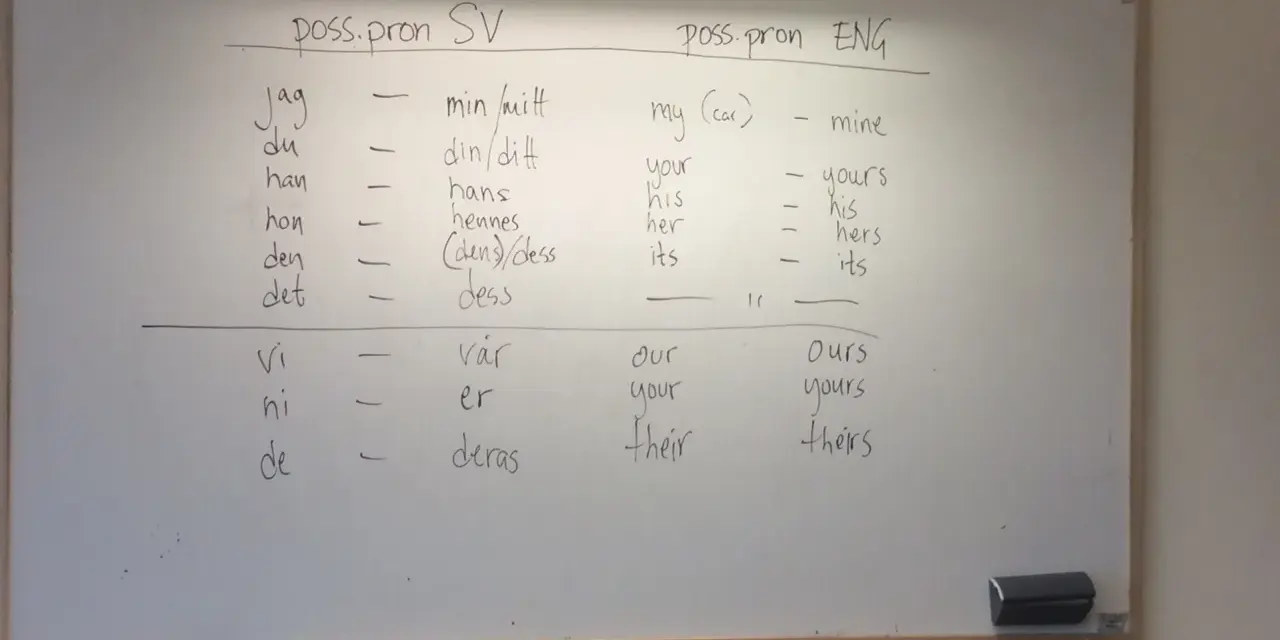 poss.pron SV poss.pron ENG
jag — min/mitt my (car) - mine
du — din/ditt your - yours
han — hans his - his
hon — hennes her - hers
den — (dens)/dess its - its
det — dess — " —
vi — vår our ours
ni — er your yours
de — deras their theirs